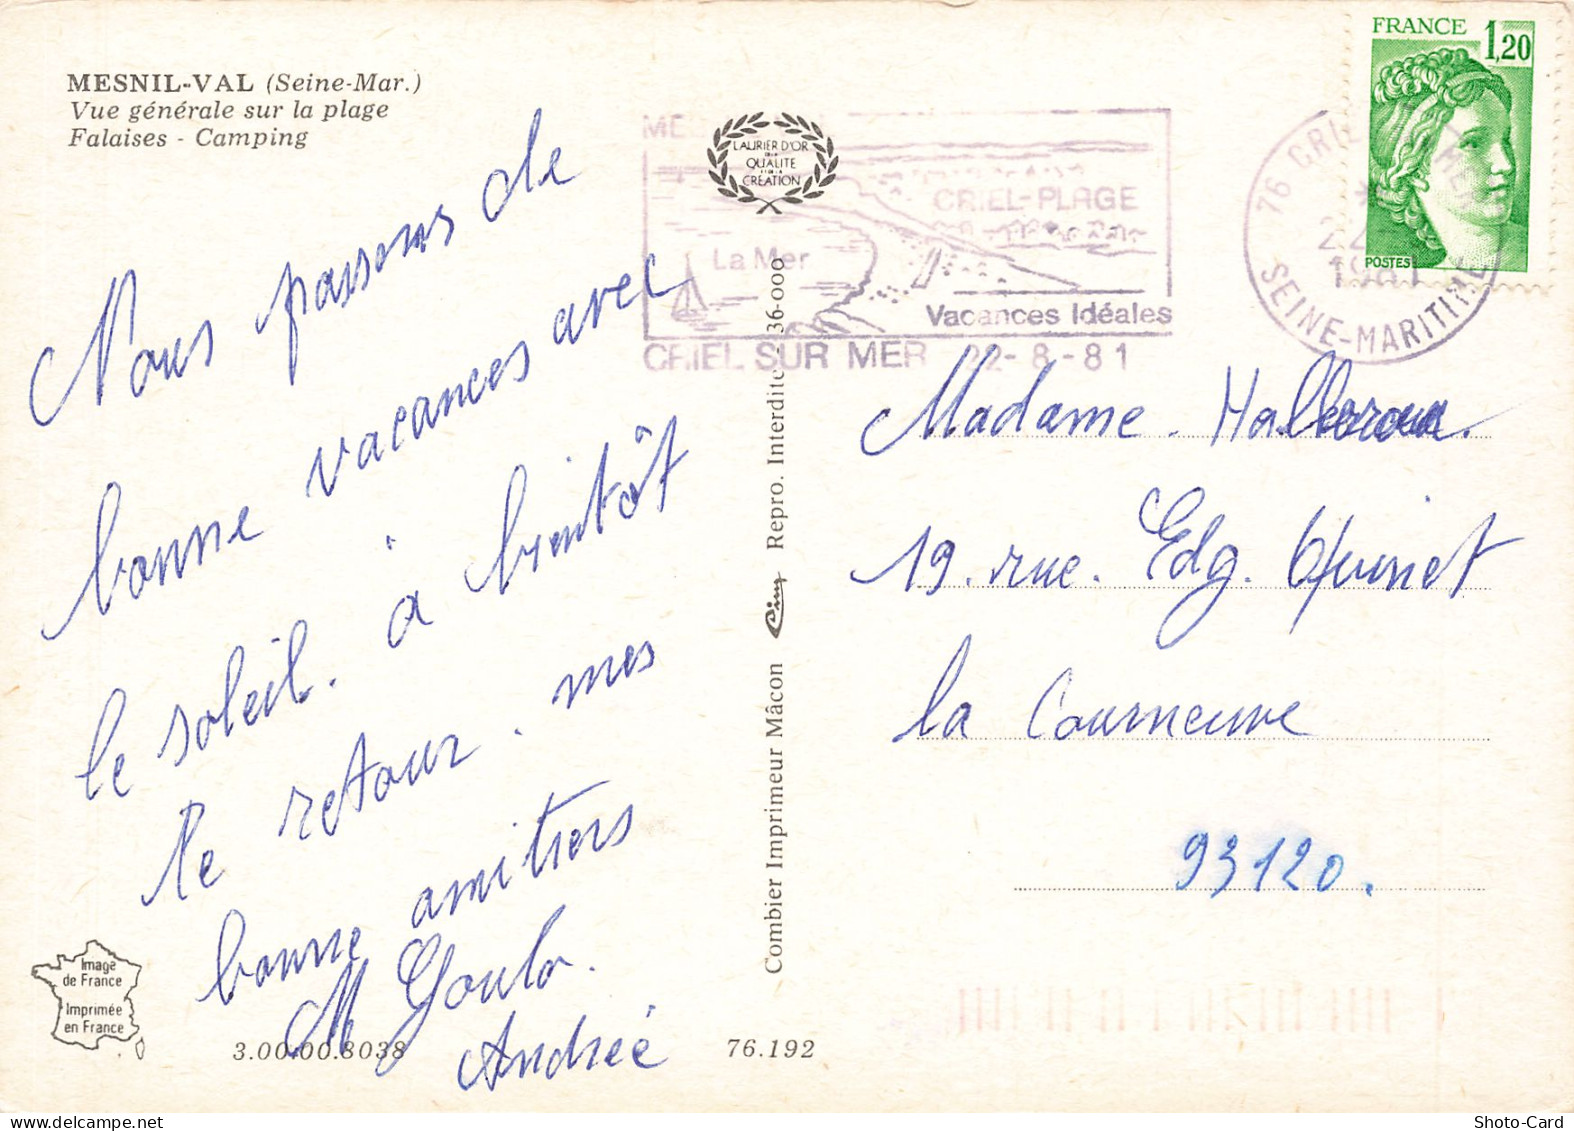 MESNIL-VAL (Seine-Mar.)
Vue générale sur la plage
Falaises - Camping
Nous passons de
bonne vacances avec
le soleil. à bientôt
le retour. mes
bonne amitiers
M Goulo.
Andréé
Image
de France
Imprimée
en France
3.00.00.8038
76.192
Combier Imprimeur Mâcon Cim Repro. Interdite - 36-000
LAURIER D'OR
QUALITE
CREATION
CRIEL-PLAGE
La Mer
Vacances Idéales
CRIEL SUR MER 22-8-81
76 CRIEL MER
1981
SEINE-MARITIME
FRANCE 1,20
POSTES
Madame.
19. rue. Edg. Quinet
la Courneuve
93120.
Shoto-Card